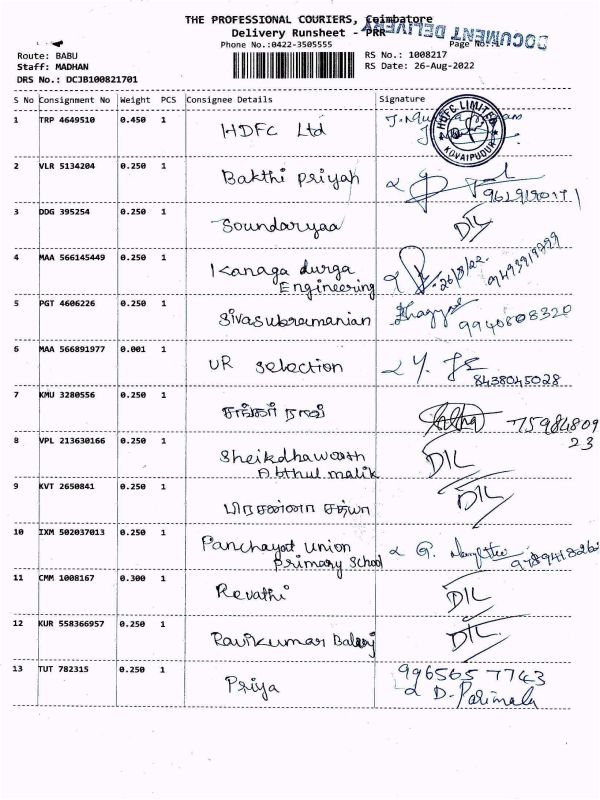 THE PROFESSIONAL COURIERS, Coimbatore
Delivery Runsheet - PRR
DOCUMENT DELIVERY
Phone No.:0422-3505555
Page No.:
Route: BABU
RS No.: 1008217
Staff: MADHAN
RS Date: 26-Aug-2022
DRS No.: DCJB100821701
S No Consignment No Weight PCS Consignee Details Signature
1 TRP 4649510 0.450 1 HDFC Ltd
HDFC LIMITED
KOVAIPUDUR
2 VLR 5134204 0.250 1 Bakthi priyah
3 DDG 395254 0.250 1 Soundaryaa DIL
4 MAA 566145449 0.250 1 Kanaga durga 26/8/22
Engineering
5 PGT 4606226 0.250 1 Sivasubramanian 9940808320
6 MAA 566891977 0.001 1 UR Selection
8438045028
7 KMU 3280556 0.250 1 75984809
23
8 VPL 213630166 0.250 1 Sheikdhawooth DIL
Abthul malik
9 KVT 2650841 0.250 1 பிரசன்னா சத்யா DIL
10 IXM 502037013 0.250 1 Panchayat union
Primary School
11 CMM 1008167 0.300 1 Revathi DIL
12 KUR 558366957 0.250 1 Ravikumar Balaji DIL
13 TUT 782315 0.250 1 Priya 996565 7743
D. Parimala